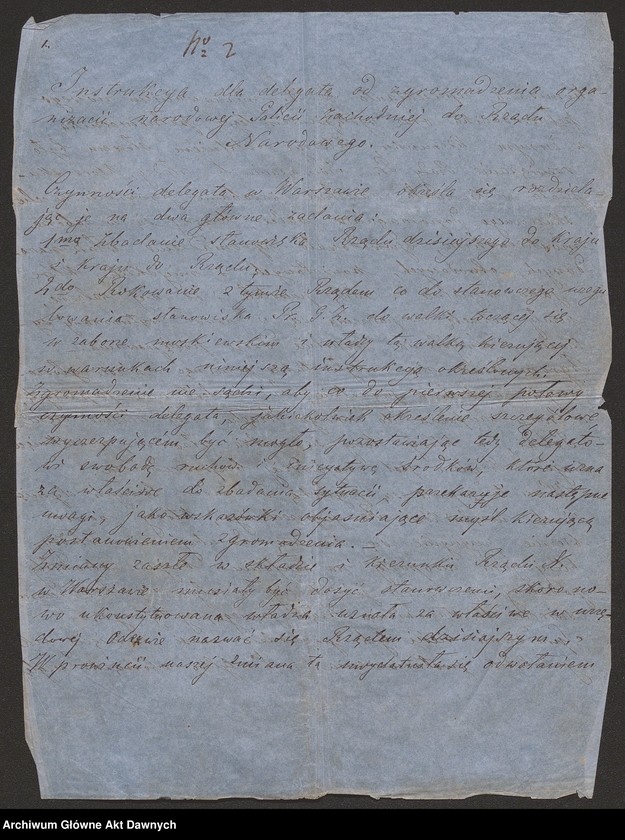 1.
No 2
Instrukcya dla delegata od zgromadzenia orga-
nizacii narodowej Galicii zachodniej do Rządu
Narodowego.
Czynności delegata w Warszawie określa się rozdziela-
jąc je na dwa główne zadania:
1mo Zbadanie stanowiska Rządu dzisiejszego do kraju
i kraju do Rządu.
2do Rokowanie z tymże Rządem co do stanowczego uregu-
lowania stanowiska Pr. G. Z. do walki toczącej się
w zaborze moskiewskim i władzy tą walką kierującej
w warunkach niniejszą instrukcyą określonych.
Zgromadzenie nie sądzi, aby co do pierwszej połowy
czynności delegata, jakiekolwiek określenie szczegółowe
wyczerpującem być mogło, pozostawiając tedy delegato-
wi swobodę ruchów i inicyatywę środków, które uzna
za właściwe do zbadania sytuacii, przekazuje następne
uwagi, jako wskazówki objaśniające myśl kierującą
postanowieniem zgromadzenia. —
Zmiany zaszłe w składzie i kierunku Rządu N.
w Warszawie musiały być dosyć stanowcze, skoro no-
wo ukonstytuowana władza uznała za właściwe w urzę-
dowej odezwie nazwać się "Rządem dzisiejszym".
W prowincii naszej zmiana ta wydatniła się odwołaniem
Archiwum Główne Akt Dawnych